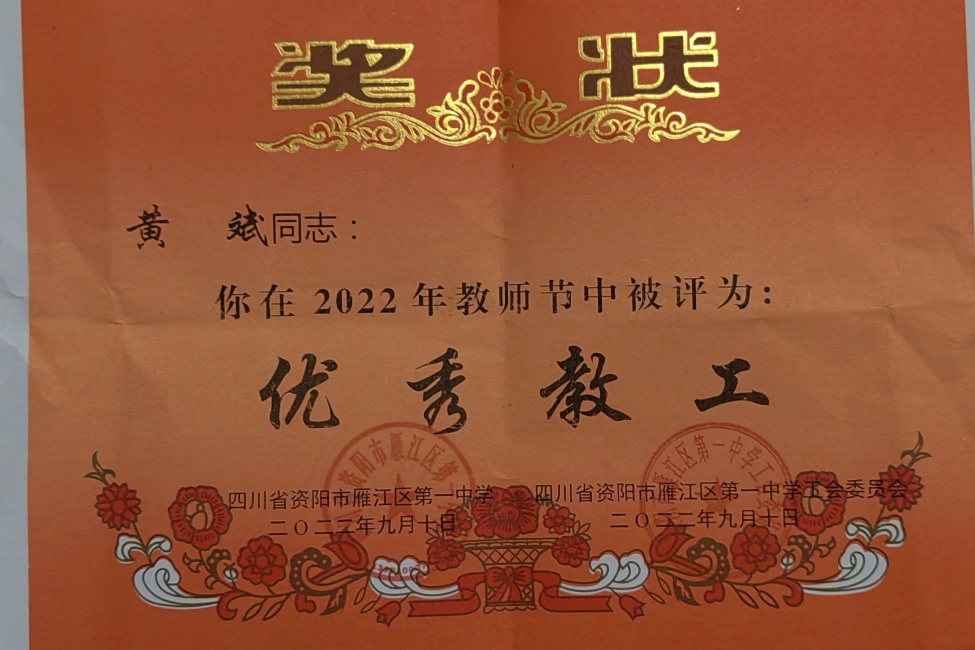 奖状
黄 斌同志：
你在 2022 年教师节中被评为：
优秀教工
四川省资阳市雁江区第一中学
二〇二二年九月十日
四川省资阳市雁江区第一中学工会委员会
二〇二二年九月十日
资阳市雁江区第
雁江区第一中学工